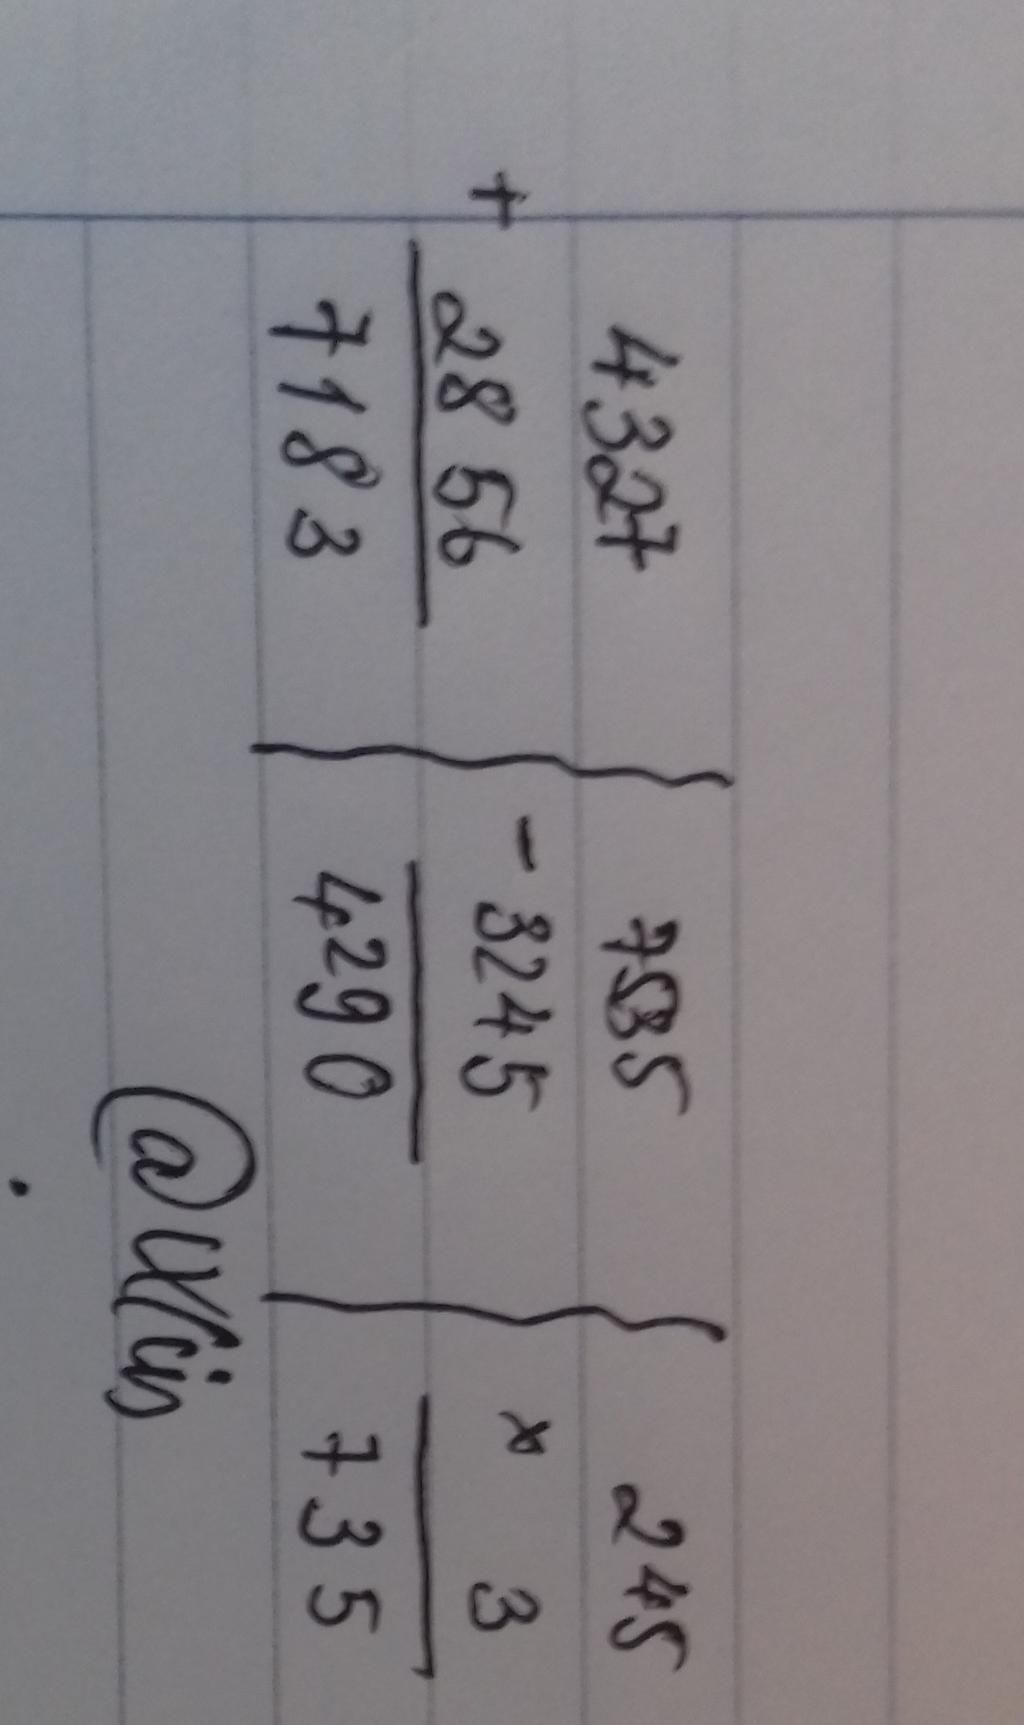 4327
+ 2856
7183
7535
- 3245
4290
245
x 3
735